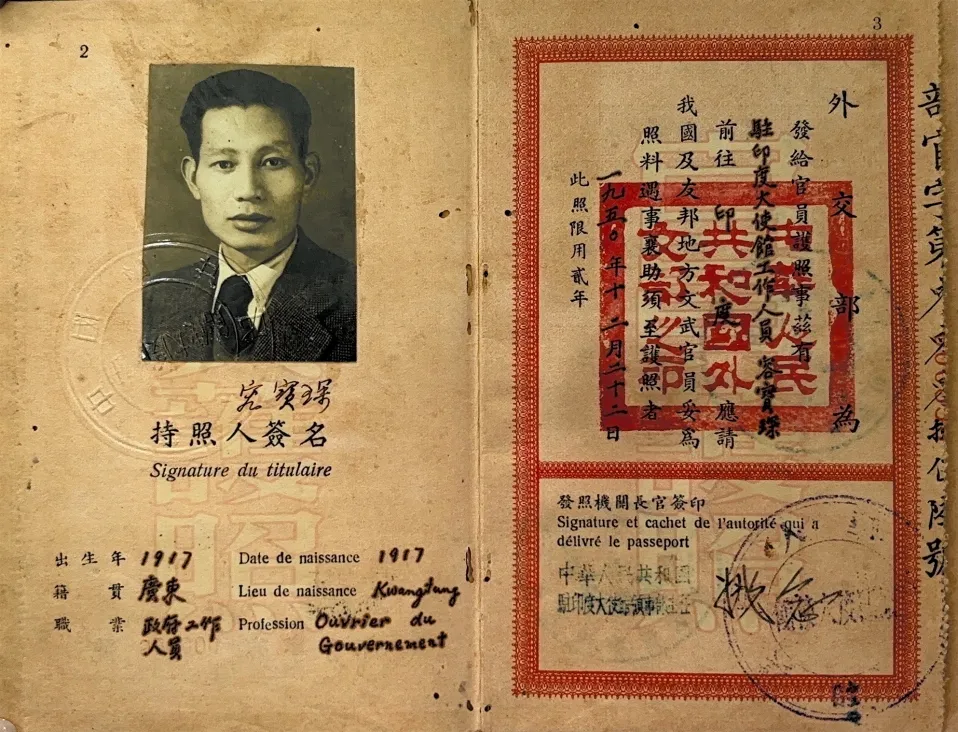 2
容寶琛
持照人簽名
Signature du titulaire
出生年 1917 Date de naissance 1917
籍貫 廣東 Lieu de naissance Kwangtung
職業 政府工作人員 Profession Ouvrier du Gouvernement
3
外交部為
發給官員護照事茲有
駐印度大使館工作人員容寶琛
前往印度應請
我國及友邦地方文武官員妥為
照料遇事襄助須至護照者
一九五〇年十二月二十二日
此照限用貳年
中華人民
共和國外
交部之印
發照機關長官簽印
Signature et cachet de l'autorité qui a
délivré le passeport
中華人民共和國
駐印度大使館領事部主任